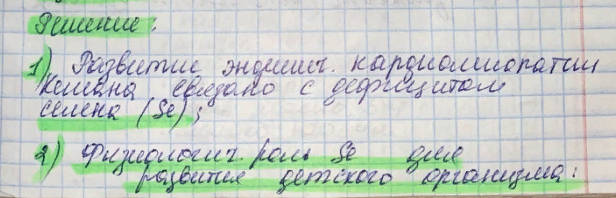 Решение:
1) Развитие эндемич. кардиомиопатии
Кешана связано с дефицитом
селена (Se);
2) Физиологич. роль Se для
развития детского организма: